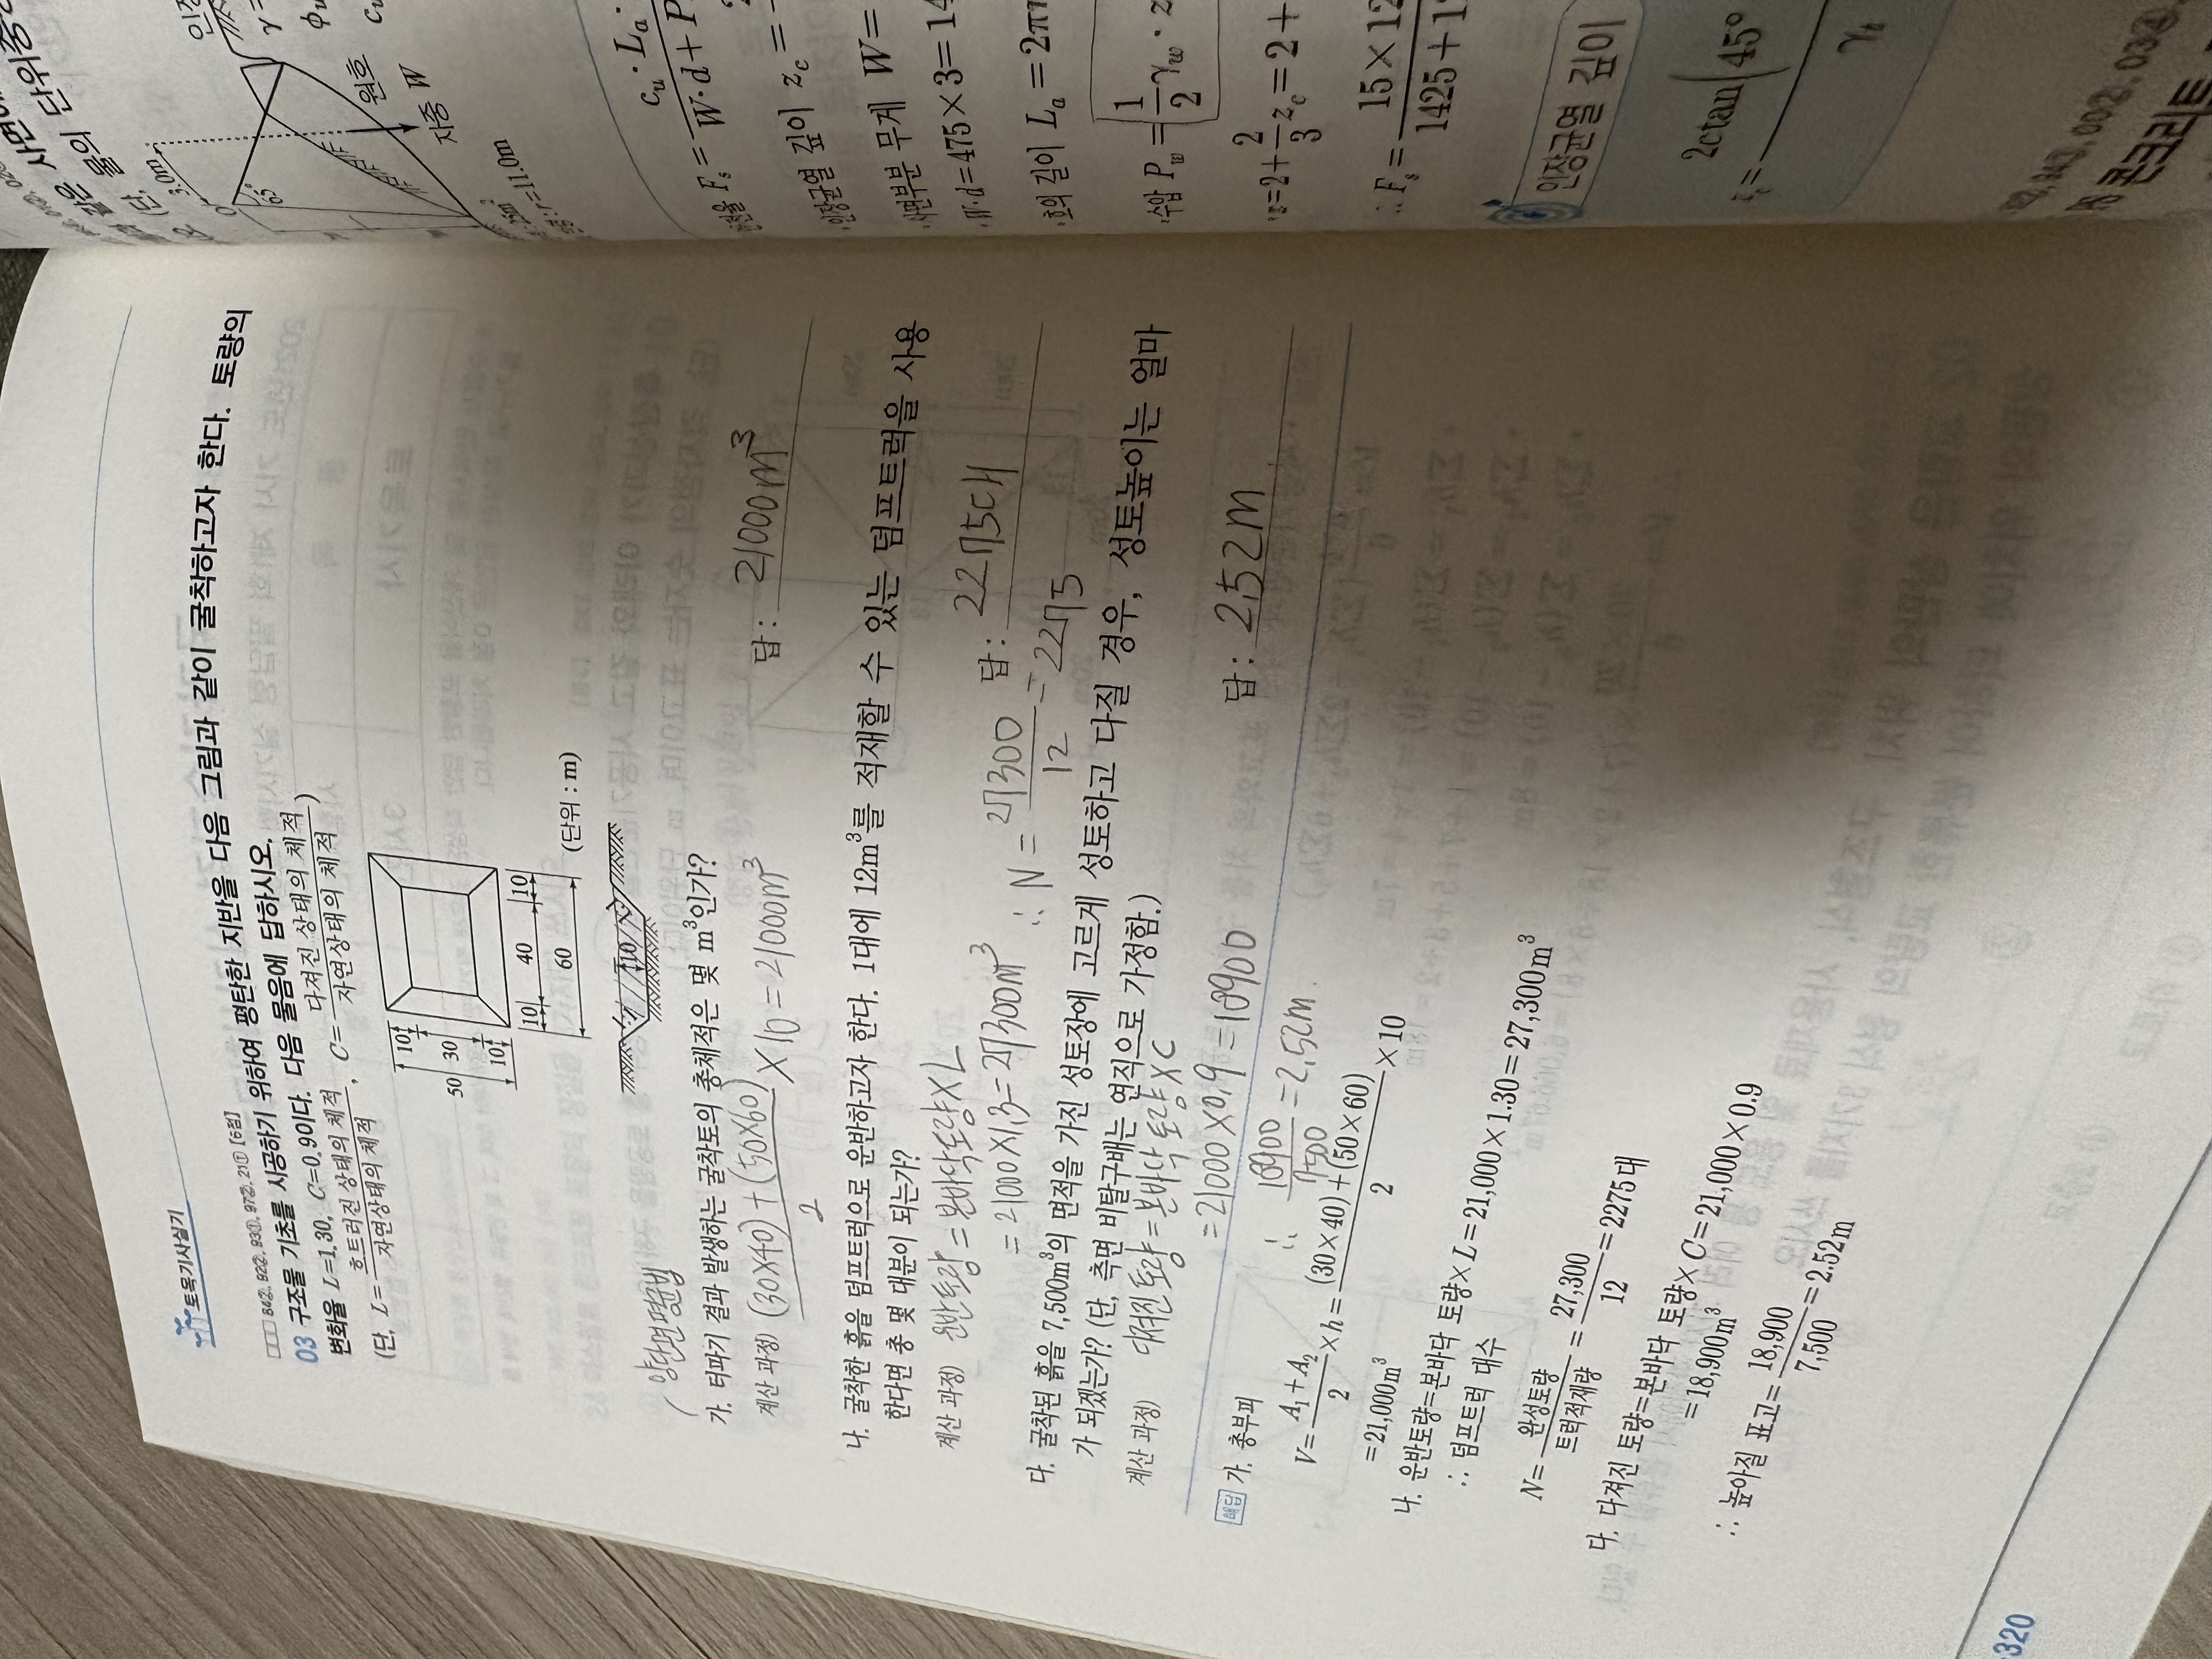 토목기사실기
84②, 92②, 93①, 97②, 21① [6점]
03 구조물 기초를 시공하기 위하여 평탄한 지반을 다음 그림과 같이 굴착하고자 한다. 토량의
변화율 L=1.30, C=0.9이다. 다음 물음에 답하시오.
(단, L=흐트러진 상태의 체적/자연상태의 체적, C=다져진 상태의 체적/자연상태의 체적)
10
50 30
10
10 40 10
60
(단위 : m)
10
양단면평균법
가. 터파기 결과 발생하는 굴착토의 총체적은 몇 m³인가?
계산 과정) (30×40)+(50×60)/2 ×10=21000m³
답 : 21000m³
나. 굴착한 흙을 덤프트럭으로 운반하고자 한다. 1대에 12m³를 적재할 수 있는 덤프트럭을 사용
한다면 총 몇 대분이 되는가?
계산 과정) 운반토량=본바닥토량×L
=21000×1.3=27300m³ ∴ N=27300/12=2275
답 : 2275대
다. 굴착된 흙을 7,500m³의 면적을 가진 성토장에 고르게 성토하고 다질 경우, 성토높이는 얼마
가 되겠는가? (단, 측면 비탈구배는 연직으로 가정함.)
계산 과정) 다져진 토량=본바닥 토량×C
=21000×0.9=18900
∴ 18900/7500=2.52m.
답 : 2.52m
해답 가. 총부피
V=A₁+A₂/2×h=(30×40)+(50×60)/2×10
=21,000m³
나. 운반토량=본바닥 토량×L=21,000×1.30=27,300m³
∴ 덤프트럭 대수
N=완성토량/트럭적재량=27,300/12=2275대
다. 다져진 토량=본바닥 토량×C=21,000×0.9
=18,900m³
∴ 높아질 표고=18,900/7,500=2.52m
320
사면
깊은
물의
단위중
(단,
3.0m
65°
원호
자중 W
r=11.0m
인장
γ=
F_s=c_u·L_a·/W·d+P
인장균열 깊이 z_c=
사면부분 무게 W=
W·d=475×3=14
호의 길이 L_a=2πr
수압 P_w=1/2γ_w·z
=2+2/3z_c=2+
∴ F_s=15×12/1425+1
인장균열 깊이
2ctan(45°
γ_t